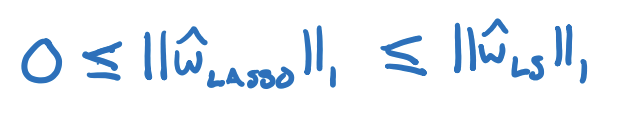 0 ≤ ||ŵ_LASSO||₁ ≤ ||ŵ_LS||₁